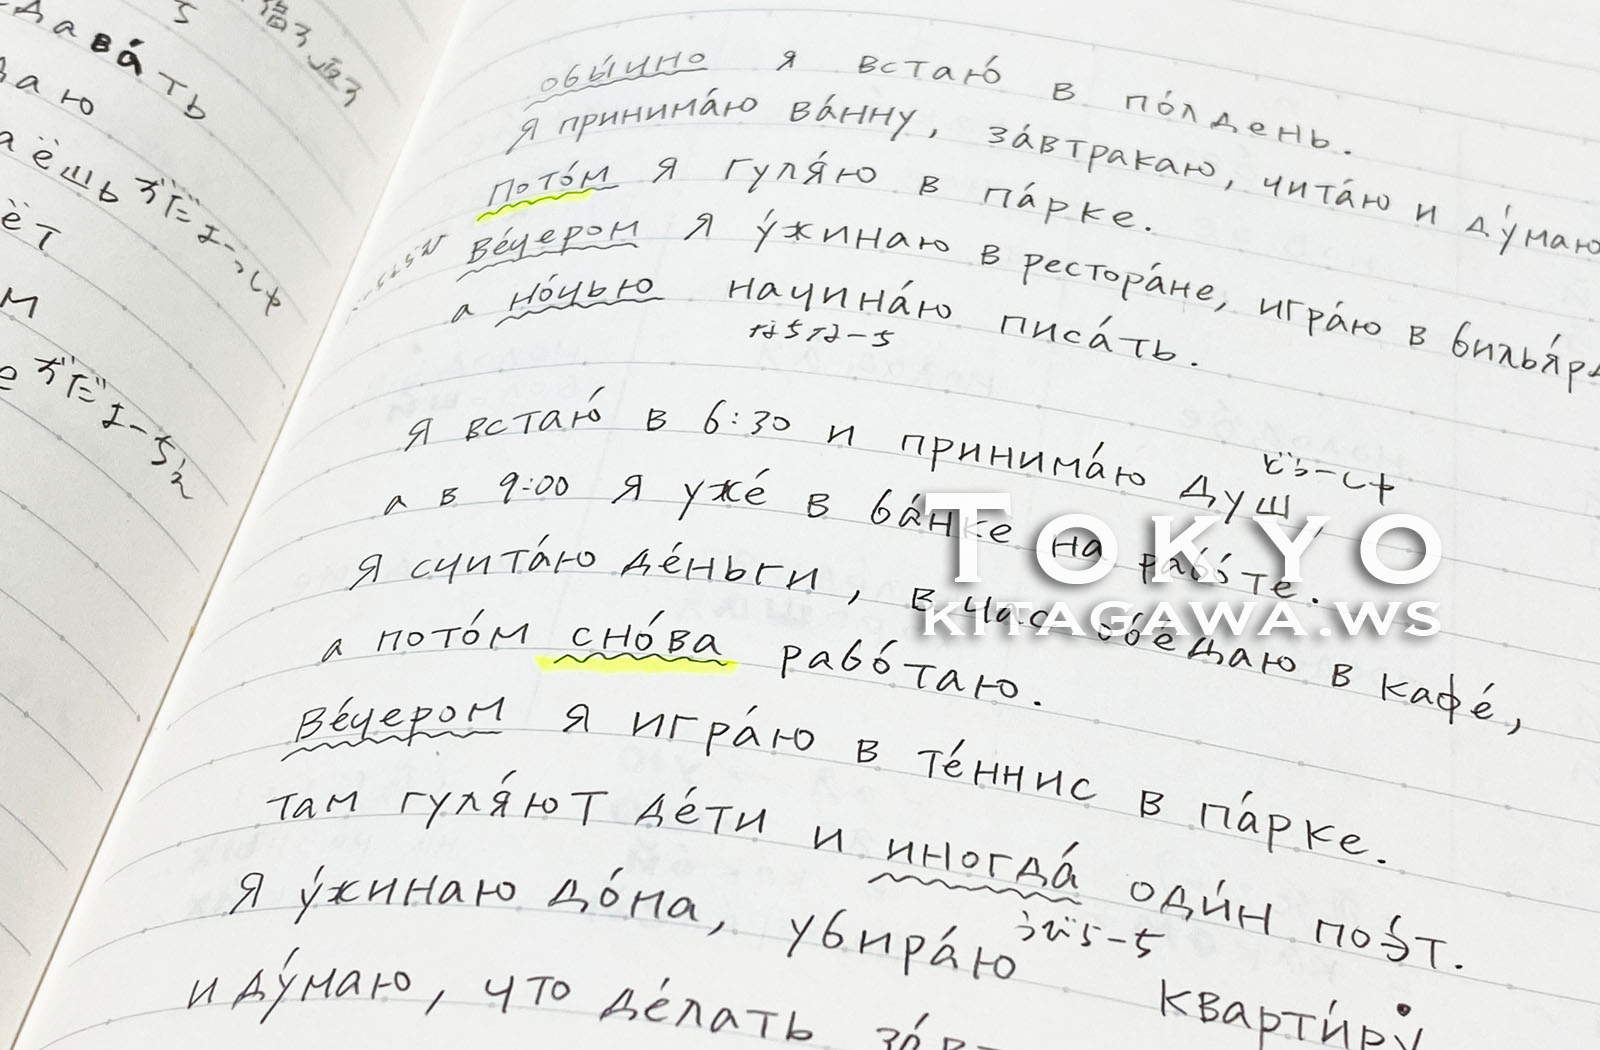 давать
даю
аёшь
ёт
м
е
обы́чно я встаю́ в по́лдень.
Я принима́ю ва́нну, за́втракаю, чита́ю и ду́маю
Пото́м я гуля́ю в па́рке.
Ве́чером я у́жинаю в рестора́не, игра́ю в билья́рд
а но́чью начина́ю писа́ть.
Я встаю́ в 6:30 и принима́ю душ,
а в 9:00 я уже́ в ба́нке на рабо́те.
Я счита́ю де́ньги, в час обе́даю в кафе́,
а пото́м сно́ва рабо́таю.
Ве́чером я игра́ю в те́ннис в па́рке.
там гуля́ют де́ти и иногда́ оди́н поэ́т.
Я у́жинаю до́ма, убира́ю кварти́ру
и ду́маю, что де́лать за́в
TOKYO
KITAGAWA.WS